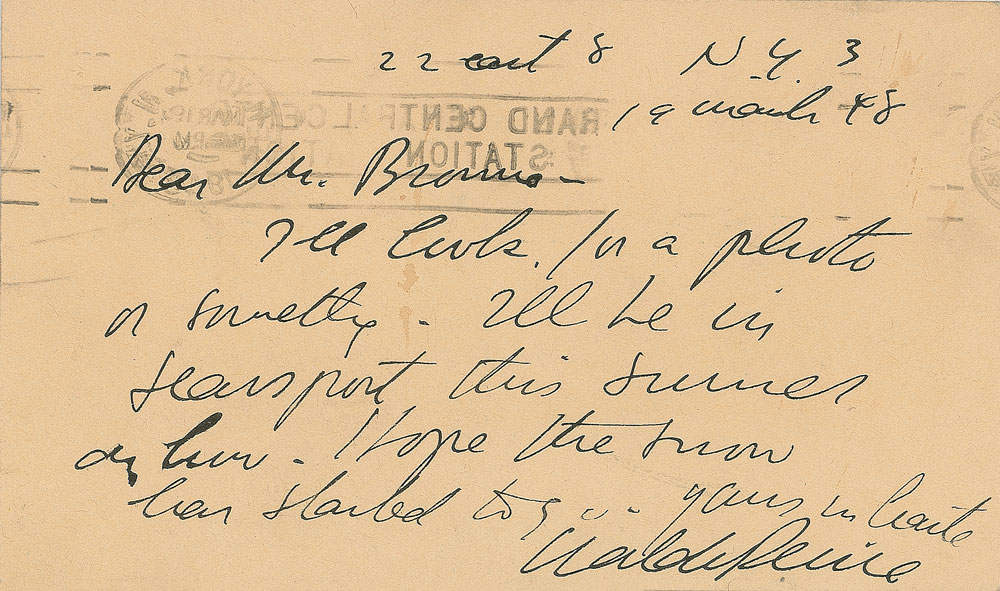 22 east 8 N.Y. 3
19 march 48
RAND CENTRAL
STATION
Dear Mr. Browne -
I'll look for a photo
or something - I'll be in
Searsport this summer
anyhow - Hope the snow
has started to go.. yours in haste
Waldo Peirce